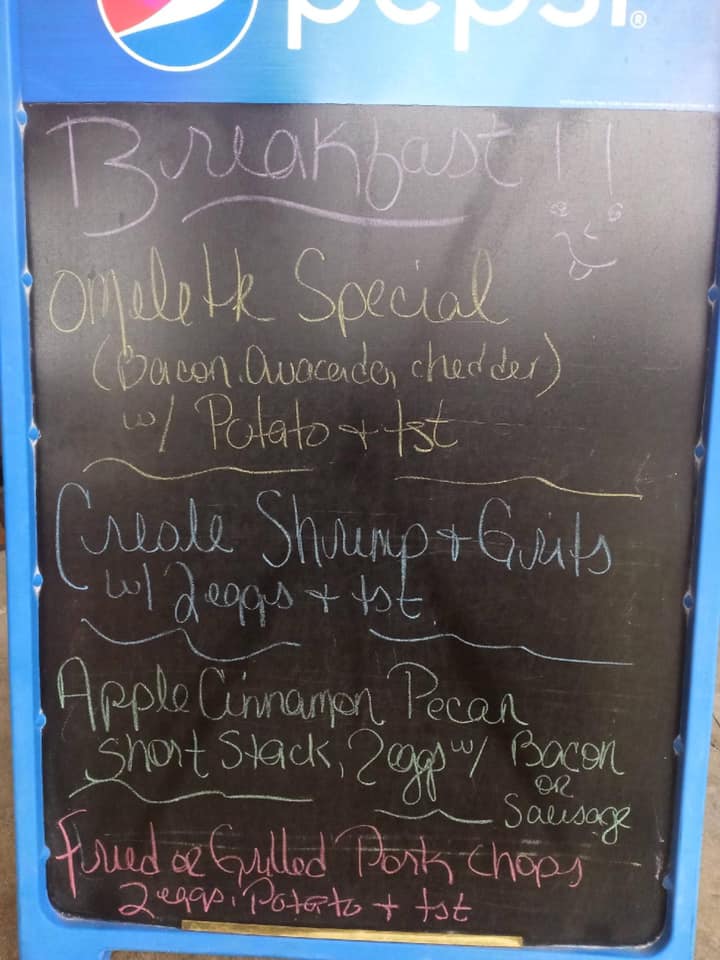 pepsi®
Breakfast!!
Omelette Special
(Bacon, Avacado, chedder)
w/ Potato + tst
Creole Shrimp + Grits
w/ 2 eggs + tst
Apple Cinnamon Pecan
Short Stack, 2 eggs w/ Bacon
OR
Sausage
Fried or Grilled Pork Chops
2 eggs, Potato + tst